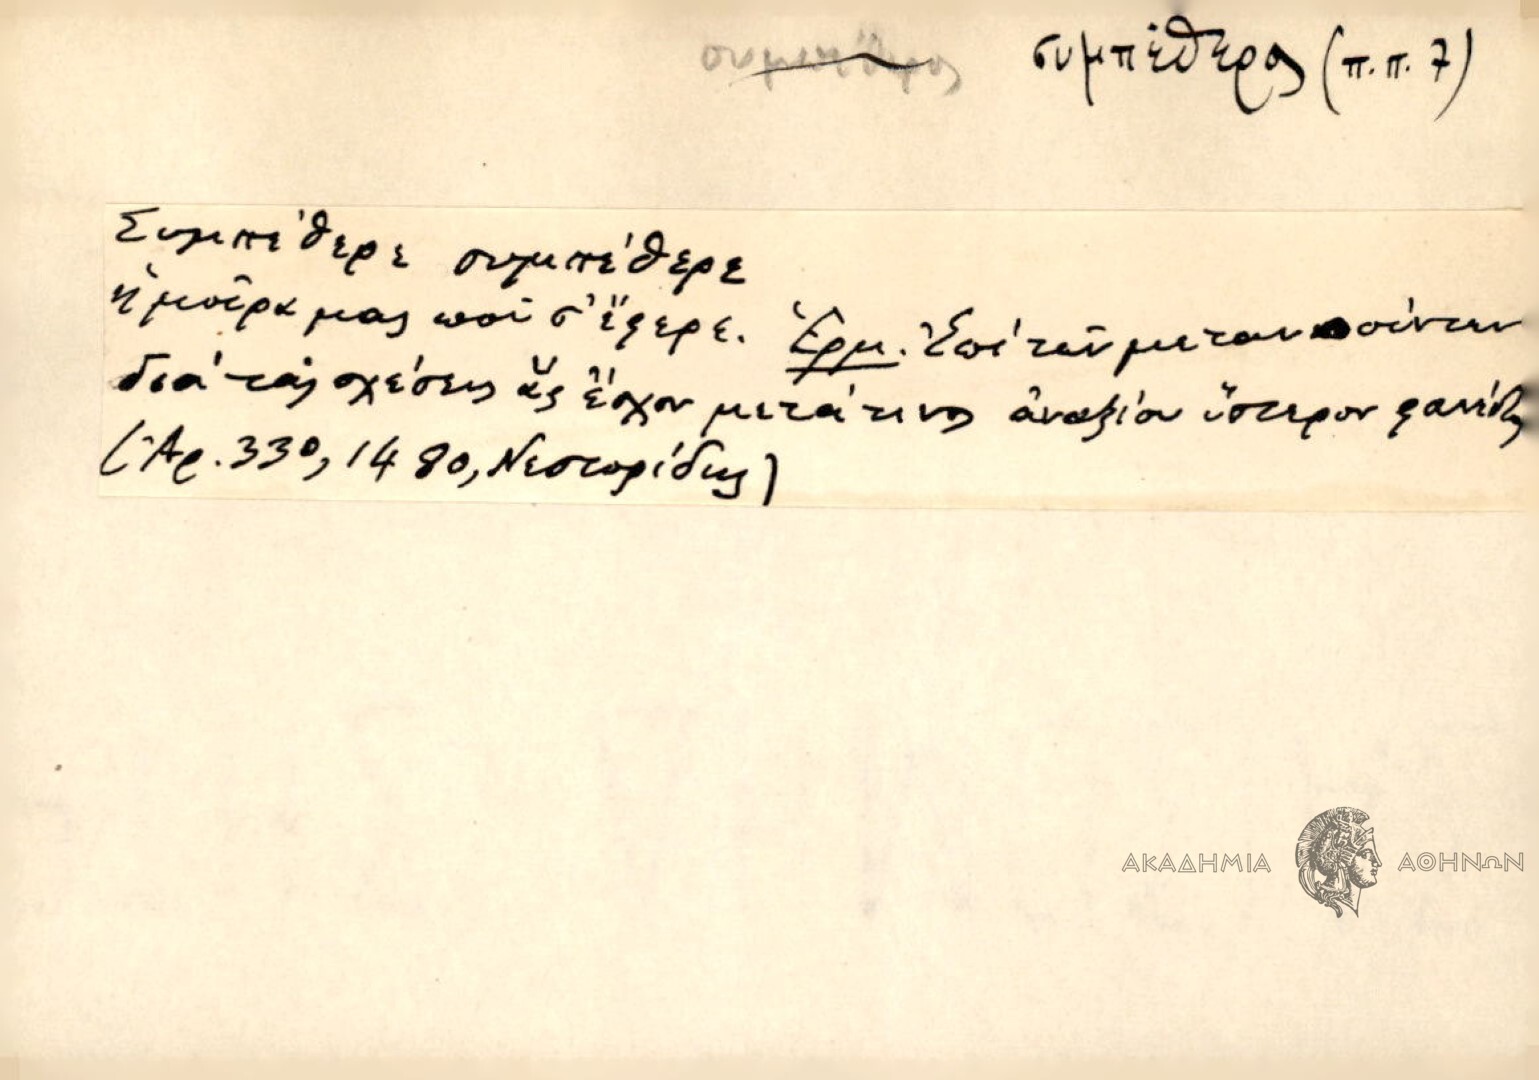 συμπέθερος συμπέθερος (π.π. 7)
Συμπέθερε συμπέθερε
ἡ μοῖρα μας ποῦ σ' ἔφερε. Ἑρμ. Ἐπὶ τῶν μετανοούντων
διὰ τὰς σχέσεις ἃς ἔσχον μετά τινος ἀναξίου ὕστερον
(Ἀρ. 330, 1480, Νεστορίδης)
ΑΚΑΔΗΜΙΑ ΑΘΗΝΩΝ